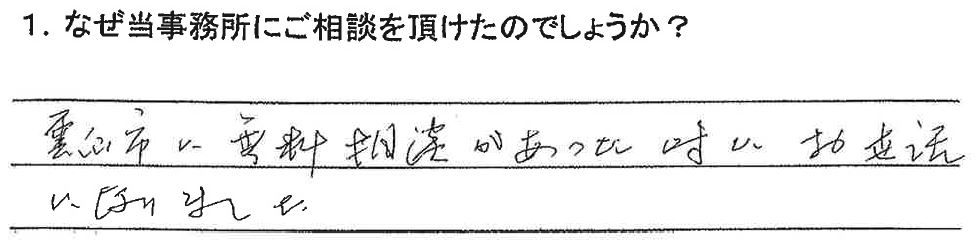 1. なぜ当事務所にご相談を頂けたのでしょうか?
雲仙市に無料相談があった時に お世話
になりました